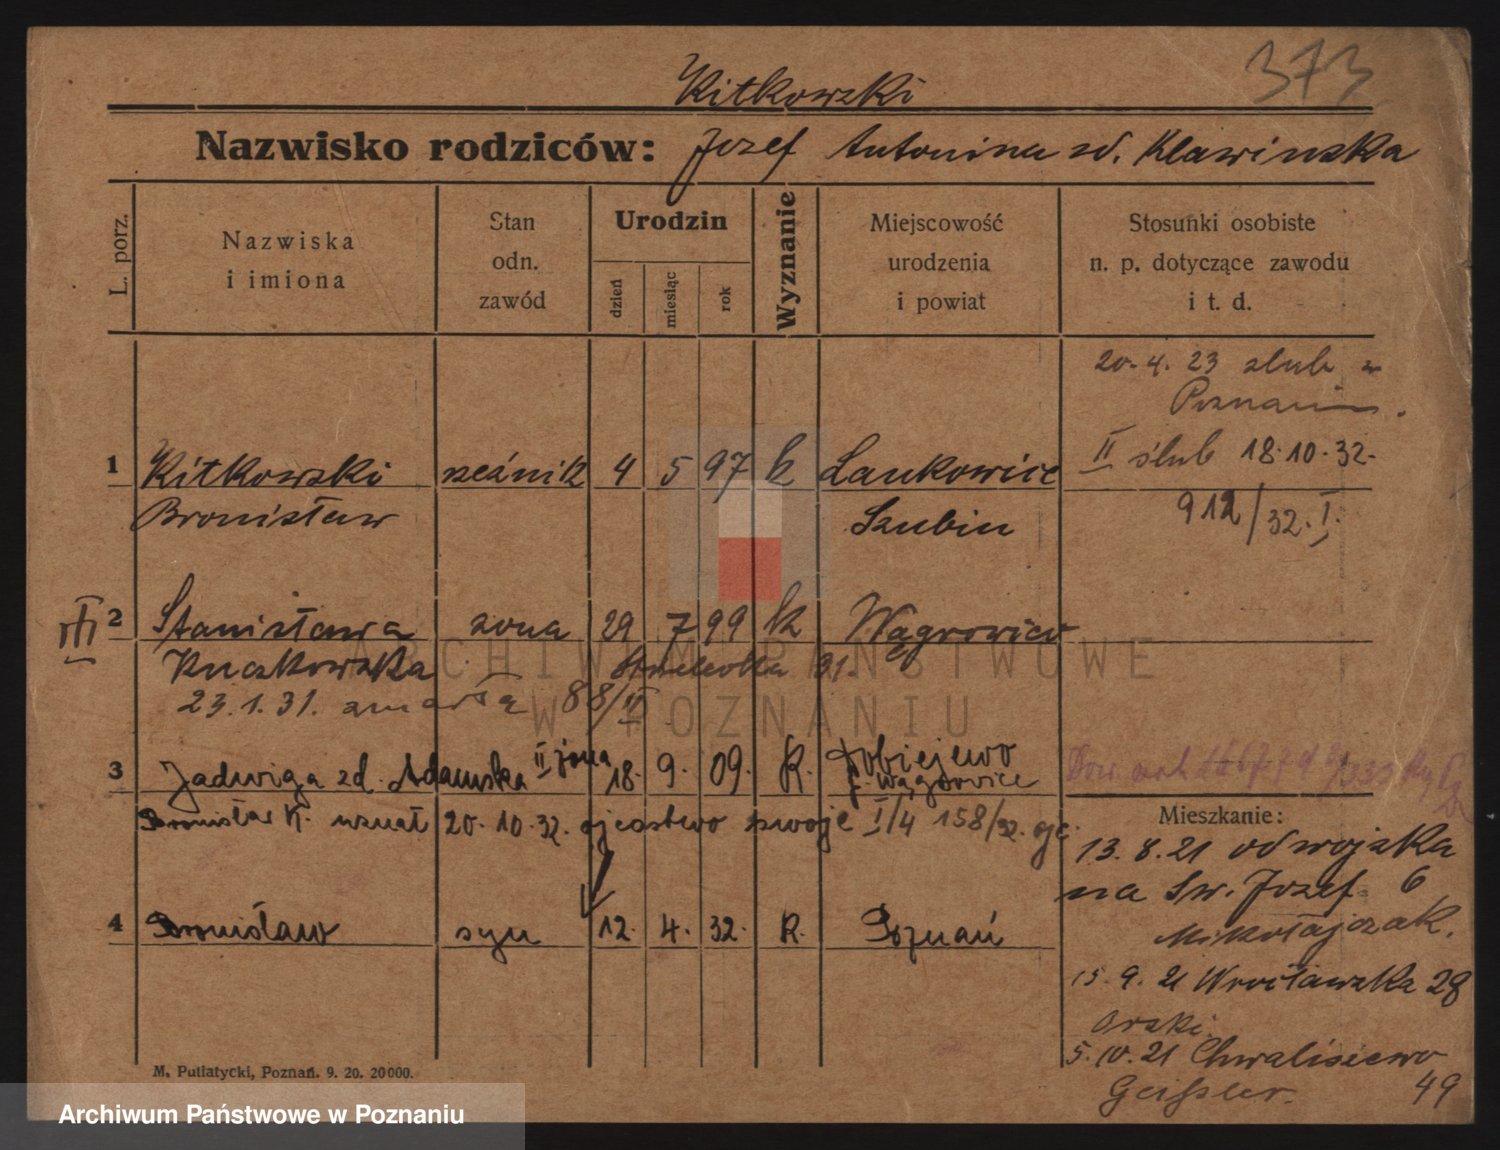 373
Kitkowski
Nazwisko rodziców: Jozef Antonina zd. Klawinska
L. porz.
Nazwiska i imiona
Stan odn. zawód
Urodzin
dzień
miesiąc
rok
Wyznanie
Miejscowość urodzenia i powiat
Stosunki osobiste n. p. dotyczące zawodu i t. d.
20.4.23 slub w
Poznaniu.
1 Kitkowski rzeźnik 4 5 97 k Lankowice
II ślub 18.10.32.
Bronisław Szubin
912/32. I.
2 Stanisława zona 29 7 99 k Wągrowiec
Kuczkowska 31.
23.1.31. zmarła 88/II
3 Jadwiga zd. Adamska II żona 18. 9. 09. R. Gobiejewo
p. Wągrowiec
Bronisław K. uznał 20.10.32. ojcostwo swoje I/4 158/32.
4 Bronisław syn 12. 4. 32. R. Poznań
Mieszkanie:
13.8.21 od wojska
na Sw. Jozef 6
Mikołajczak.
15.9.21 Wrocławska 28
Orski.
5.10.21 Chwaliszewo
Geißler. 49
M. Putiatycki, Poznań. 9. 20. 20000.
ARCHIWUM PAŃSTWOWE
W POZNANIU
Archiwum Państwowe w Poznaniu